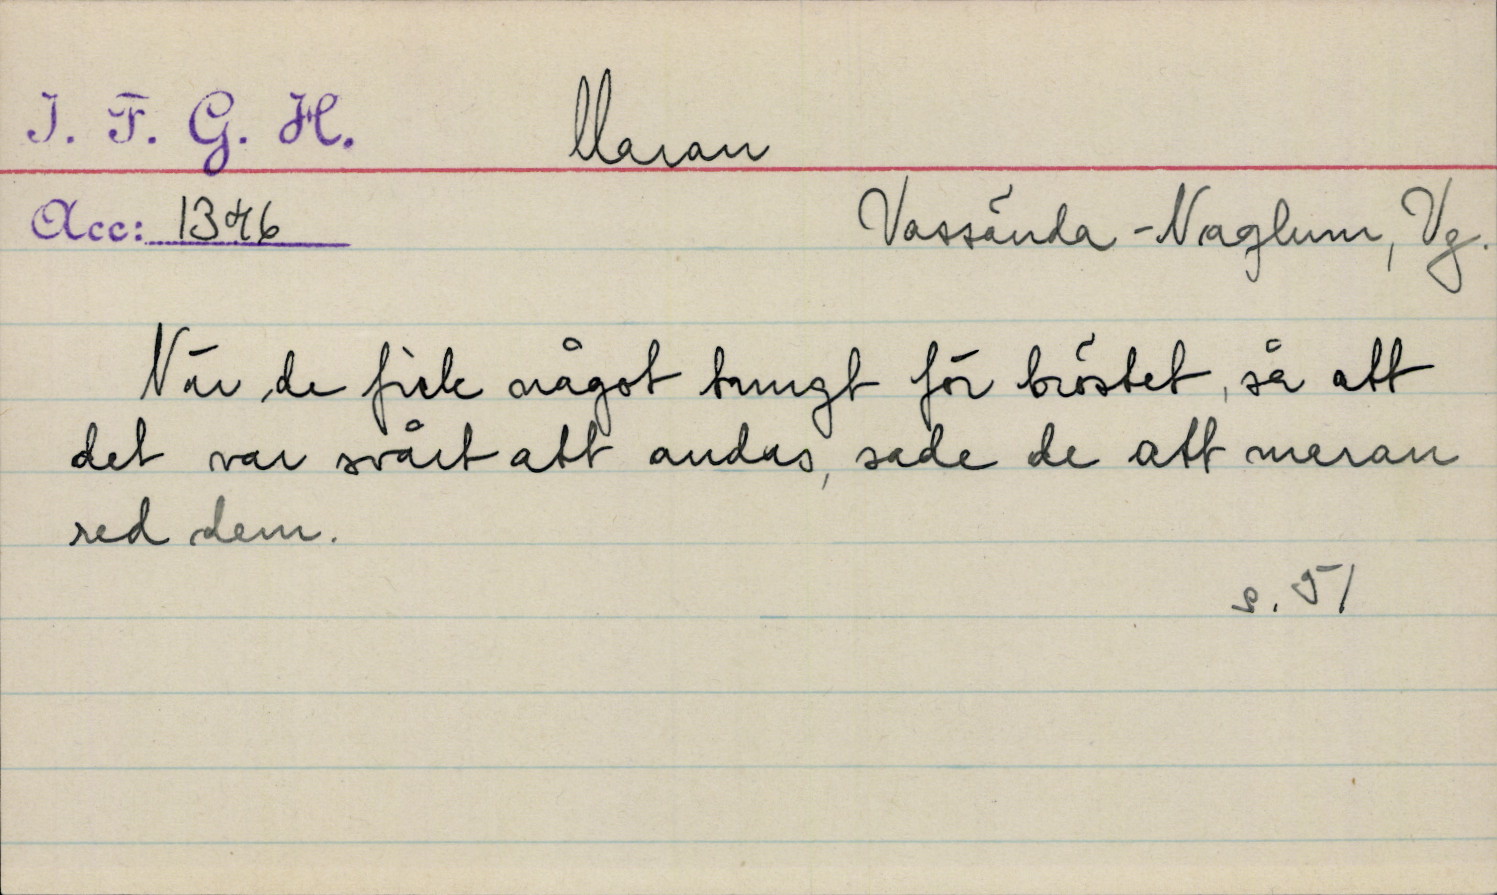 I. F. G. H. Maran
Acc: 1346 Vassända-Naglum, Vg.
När de fick något tungt för bröstet, så att
det var svårt att andas, sade de att maran
red dem.
s. 51